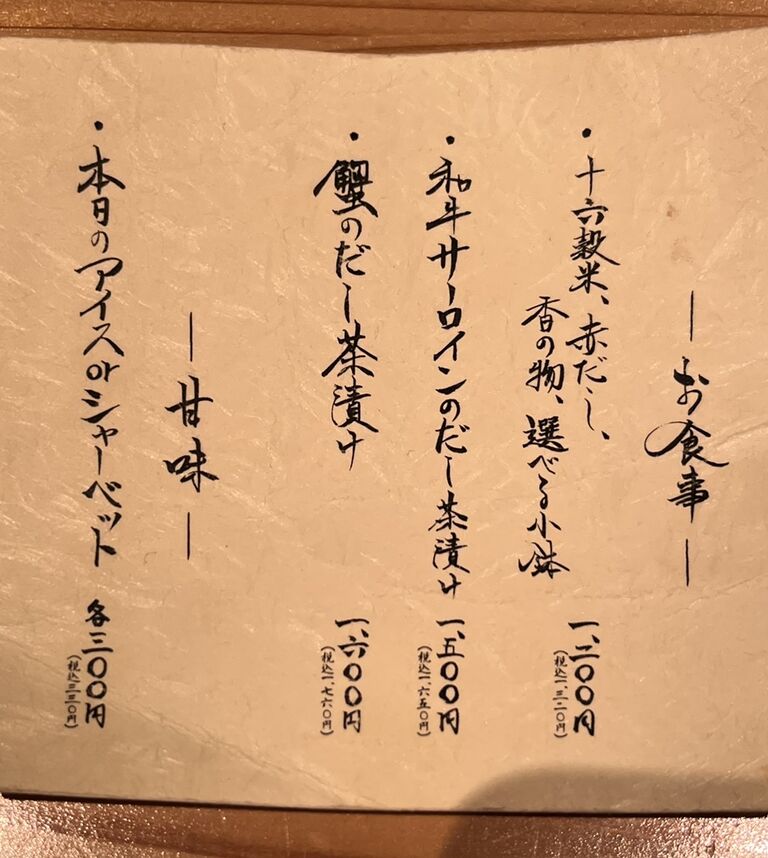 ーお食事ー
・十六穀米、赤だし、
香の物、選べる小鉢
一、二〇〇円
(税込一、三二〇円)
・和牛サーロインのだし茶漬け
一、五〇〇円
(税込一、六五〇円)
・蟹のだし茶漬け
一、六〇〇円
(税込一、七六〇円)
ー甘味ー
・本日のアイスorシャーベット
各三〇〇円
(税込三三〇円)